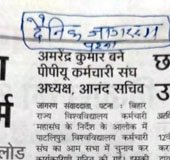 दैनिक जागरण
पटना
अमरेंद्र कुमार बने
पीपीयू कर्मचारी संघ
अध्यक्ष, आनंद सचिव
जागरण संवाददाता, पटना : बिहार
राज्य विश्वविद्यालय कर्मचारी
महासंघ के निर्देश के आलोक में
पाटलिपुत्र विश्वविद्यालय कर्मचारी
संघ का आम सभा में चुनाव कर